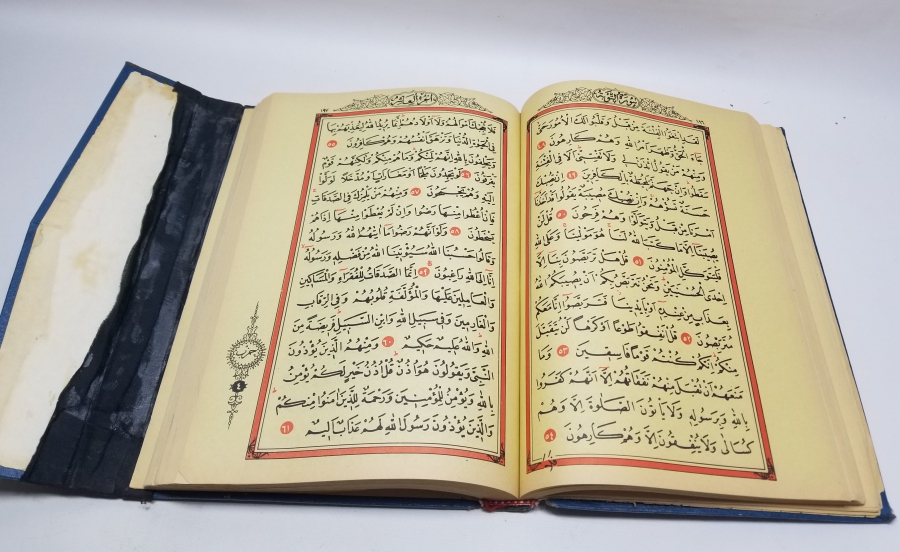 سُورَةُ التَّوْبَةِ
١٩٦
لَقَدِ ابْتَغَوُا الْفِتْنَةَ مِنْ قَبْلُ وَقَلَّبُوا لَكَ الْاُمُورَ حَتّٰى
جَٓاءَ الْحَقُّ وَظَهَرَ اَمْرُ اللّٰهِ وَهُمْ كَارِهُونَ ٤٨
وَمِنْهُمْ مَنْ يَقُولُ ائْذَنْ لِي وَلَا تَفْتِنِّي اَلَا فِي الْفِتْنَةِ
سَقَطُوا وَاِنَّ جَهَنَّمَ لَمُحِيطَةٌ بِالْكَافِرِينَ ٤٩ اِنْ تُصِبْكَ
حَسَنَةٌ تَسُؤْهُمْ وَاِنْ تُصِبْكَ مُصِيبَةٌ يَقُولُوا قَدْ اَخَذْنَا
اَمْرَنَا مِنْ قَبْلُ وَيَتَوَلَّوْا وَهُمْ فَرِحُونَ ٥٠ قُلْ لَنْ
يُصِيبَنَا اِلَّا مَا كَتَبَ اللّٰهُ لَنَا هُوَ مَوْلٰينَا وَعَلَى اللّٰهِ
فَلْيَتَوَكَّلِ الْمُؤْمِنُونَ ٥١ قُلْ هَلْ تَرَبَّصُونَ بِنَا اِلَّا
اِحْدَى الْحُسْنَيَيْنِ وَنَحْنُ نَتَرَبَّصُ بِكُمْ اَنْ يُصِيبَكُمُ اللّٰهُ
بِعَذَابٍ مِنْ عِنْدِهِ اَوْ بِاَيْدِينَا فَتَرَبَّصُوا اِنَّا مَعَكُمْ
مُتَرَبِّصُونَ ٥٢ قُلْ اَنْفِقُوا طَوْعًا اَوْ كَرْهًا لَنْ يُتَقَبَّلَ
مِنْكُمْ اِنَّكُمْ كُنْتُمْ قَوْمًا فَاسِقِينَ ٥٣ وَمَا
مَنَعَهُمْ اَنْ تُقْبَلَ مِنْهُمْ نَفَقَاتُهُمْ اِلَّا اَنَّهُمْ كَفَرُوا
بِاللّٰهِ وَبِرَسُولِهِ وَلَا يَأْتُونَ الصَّلٰوةَ اِلَّا وَهُمْ
كُسَالٰى وَلَا يُنْفِقُونَ اِلَّا وَهُمْ كَارِهُونَ ٥٤
اَلْجُزْءُ الْعَاشِرُ
١٩٧
فَلَا تُعْجِبْكَ اَمْوَالُهُمْ وَلَا اَوْلَادُهُمْ اِنَّمَا يُرِيدُ اللّٰهُ لِيُعَذِّبَهُمْ بِهَا
فِي الْحَيٰوةِ الدُّنْيَا وَتَزْهَقَ اَنْفُسُهُمْ وَهُمْ كَافِرُونَ ٥٥
وَيَحْلِفُونَ بِاللّٰهِ اِنَّهُمْ لَمِنْكُمْ وَمَا هُمْ مِنْكُمْ وَلٰكِنَّهُمْ قَوْمٌ
يَفْرَقُونَ ٥٦ لَوْ يَجِدُونَ مَلْجَاً اَوْ مَغَارَاتٍ اَوْ مُدَّخَلًا لَوَلَّوْا
اِلَيْهِ وَهُمْ يَجْمَحُونَ ٥٧ وَمِنْهُمْ مَنْ يَلْمِزُكَ فِي الصَّدَقَاتِ
فَاِنْ اُعْطُوا مِنْهَا رَضُوا وَاِنْ لَمْ يُعْطَوْا مِنْهَا اِذَا هُمْ
يَسْخَطُونَ ٥٨ وَلَوْ اَنَّهُمْ رَضُوا مَا اٰتٰيهُمُ اللّٰهُ وَرَسُولُهُ
وَقَالُوا حَسْبُنَا اللّٰهُ سَيُؤْتِينَا اللّٰهُ مِنْ فَضْلِهِ وَرَسُولُهُ
اِنَّا اِلَى اللّٰهِ رَاغِبُونَ ٥٩ اِنَّمَا الصَّدَقَاتُ لِلْفُقَرَاءِ وَالْمَسَاكِينِ
وَالْعَامِلِينَ عَلَيْهَا وَالْمُؤَلَّفَةِ قُلُوبُهُمْ وَفِي الرِّقَابِ
وَالْغَارِمِينَ وَفِي سَبِيلِ اللّٰهِ وَابْنِ السَّبِيلِ فَرِيضَةً مِنَ
اللّٰهِ وَاللّٰهُ عَلِيمٌ حَكِيمٌ ٦٠ وَمِنْهُمُ الَّذِينَ يُؤْذُونَ
النَّبِيَّ وَيَقُولُونَ هُوَ اُذُنٌ قُلْ اُذُنُ خَيْرٍ لَكُمْ يُؤْمِنُ
بِاللّٰهِ وَيُؤْمِنُ لِلْمُؤْمِنِينَ وَرَحْمَةٌ لِلَّذِينَ اٰمَنُوا مِنْكُمْ
وَالَّذِينَ يُؤْذُونَ رَسُولَ اللّٰهِ لَهُمْ عَذَابٌ اَلِيمٌ ٦١
حزب
٤